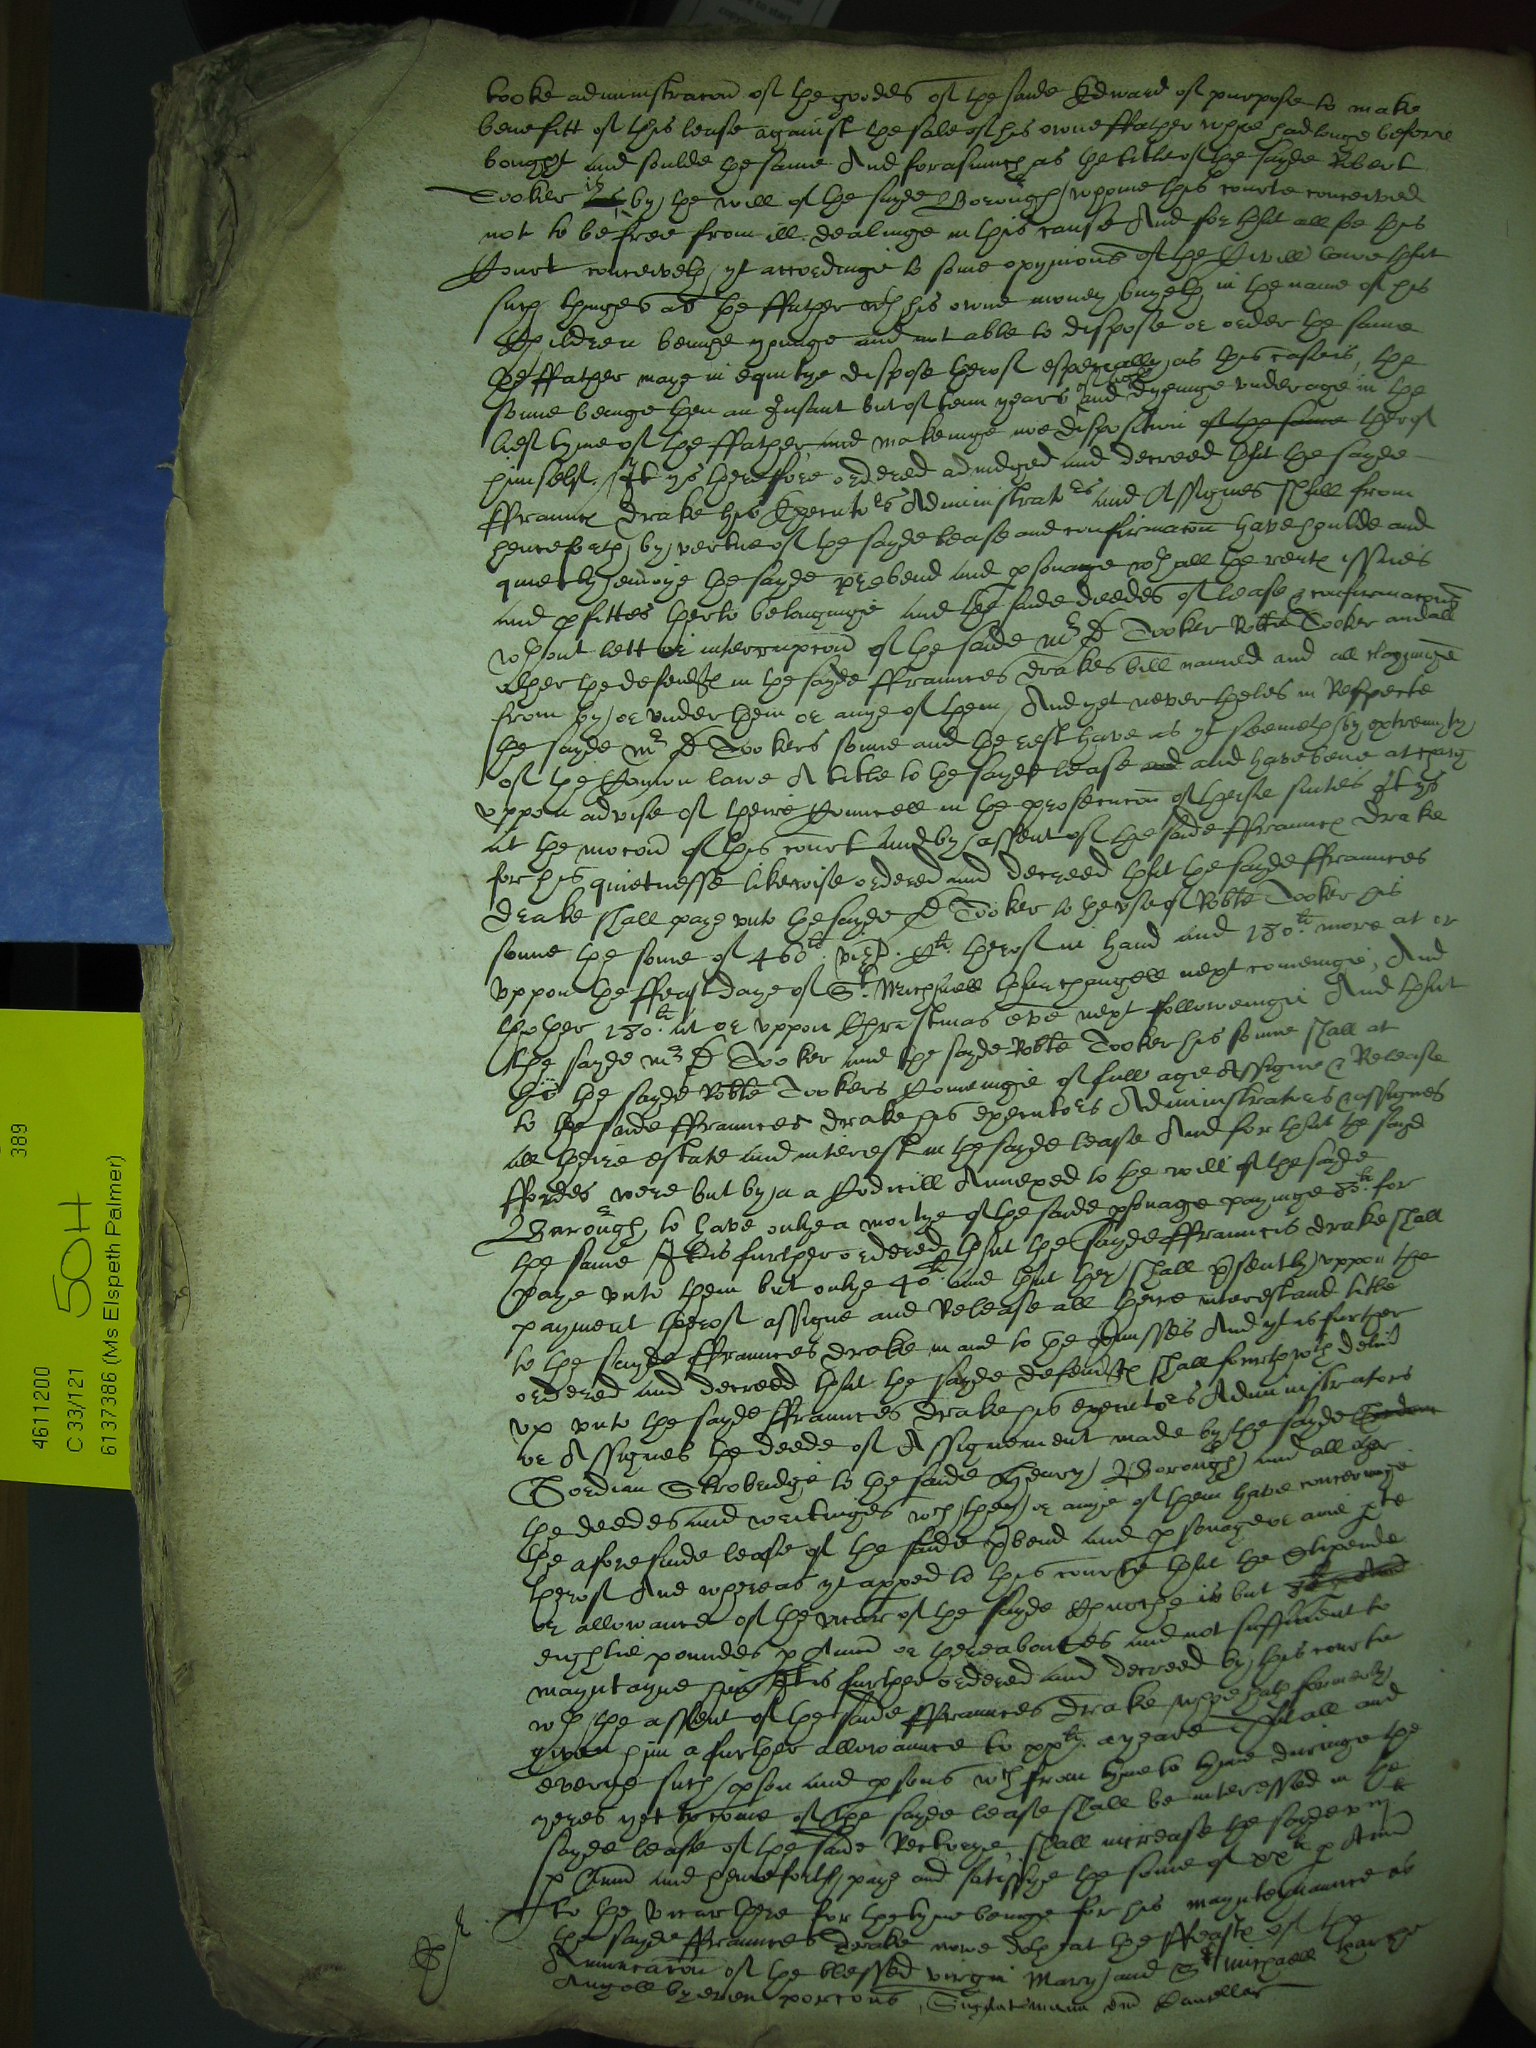 tooke administracon of the goodes of the saide Edward of purpose to make
benefitt of this lease against the sale of his owne ffather whoe had longe before
bought and soulde the same And forasmuch as the title of the sayde Robert
Tooker is by the will of the sayde Borough whome this courte conceived
not to be free from ill dealinge in this cause And for that allso this
Court conceiveth yt accordinge to some opynions of the Civill lawe that
such thinges as the ffather wth his owne money buyeth in the name of his
Children beinge younge and not able to dispose or order the same
the ffather maye in equitye dispose therof especially as this case is, the
sonne beinge then an Infant but of tenn yeares of age and dyeinge under age in the
lief tyme of the ffather and makeinge noe disposition of the same therof
himself. It ys therefore ordered adiudged and decreed that the sayde
ffraunces Drake his Executors Administrators and Assignes shall from
henceforth by vertue of the sayde lease and confirmacon have houlde and
quietly enioye the sayde prebend and psonage wth all the rentes issues
and pfittes therto belonginge and the saide deedes of lease & confirmacon
wthout lett or interrupcon of the saide mr D Tooker Robte Tooker and all
other the defendtes in the sayde ffraunces Drakes bill named and all clayminge
from by or under them or anye of them, And yet neverthelesse in Respecte
the sayde mr D Tookers sonne and the rest have as yt seemeth by extremyty
of the Comon lawe A title to the sayde lease and and have bene at charg
uppon advise of theire Councell in the prosecucon of theise suites yt ys
at the mocon of this court and by assent of the saide ffraunces Drake
for his quietnesse likewise ordered and decreed that the sayde ffraunces
Drake shall paye unto the sayde D Tooker to the use of Robte Tooker his
sonne the some of 460li vizt. Cli therof in hand and 180li more at or
uppon the ffeast daye of St. Michaell tharchangell next comeinge, And
thother 180li at or uppon Christmas eve next followeinge And that
the sayde mr D Tooker and the sayde Robte Tooker his sonne shall at
the sayde Robte Tookers Comeinge of full age Assigne & Release
to the saide ffraunces Drake his executors Administrators & assignes
all theire estate and interest in the sayde lease And for that the sayd
ffordes were but by a a Codicill Annexed to the will of the sayde
Borough to have onlye a moitye of the saide psonage payinge 80li for
the same It is further ordered that the sayde ffraunces Drake shall
paye unto them but onlye 40li and that they shall psently uppon the
payment therof assigne and Release all theire interest and title
to the sayde ffraunces Drake in and to the pmisses And yt is further
ordered and decreed that the sayde defendtes shall forthwth delivr
up unto the sayde ffraunces Drake his executors Administrators
or Assignes the deede of Assignement made by the sayde
Gordian Strobridge to the saide Henry Borough and all other
the deedes and writinges wch they or anye of them have concerninge
the aforesaide lease of the saide pbend and psonage or anie pte
therof And whereas yt apped to this courte that the stipende
or allowance of the vicar of the sayde Churche is but
eightie poundes p Annu or thereaboutes and not sufficient to
mayntayne him It is further ordered and decreed by this courte
wth the assent of the saide ffraunces Drake whoe hath formerly
given him a further allowaunce to xxli a yeare That all and
everye such pson and psons wch from tyme to tyme duringe the
yeres yet to come of the sayde lease shall be interessed in the
sayde lease of the saide Rectorye, shall increase the sayde viijli
p Annu and henceforth paye and satisfye the some of xxli p Annu
to the vicar there for the tyme beinge for his mayntenaunce as
the sayde ffraunces Drake nowe doth at the ffeastes of the
Annunciacon of the blessed virgin Mary and St Michaell tharch
Angell by even porcons,
4611200
C 33/121
6137386 (Ms Elspeth Palmer)
50H
389